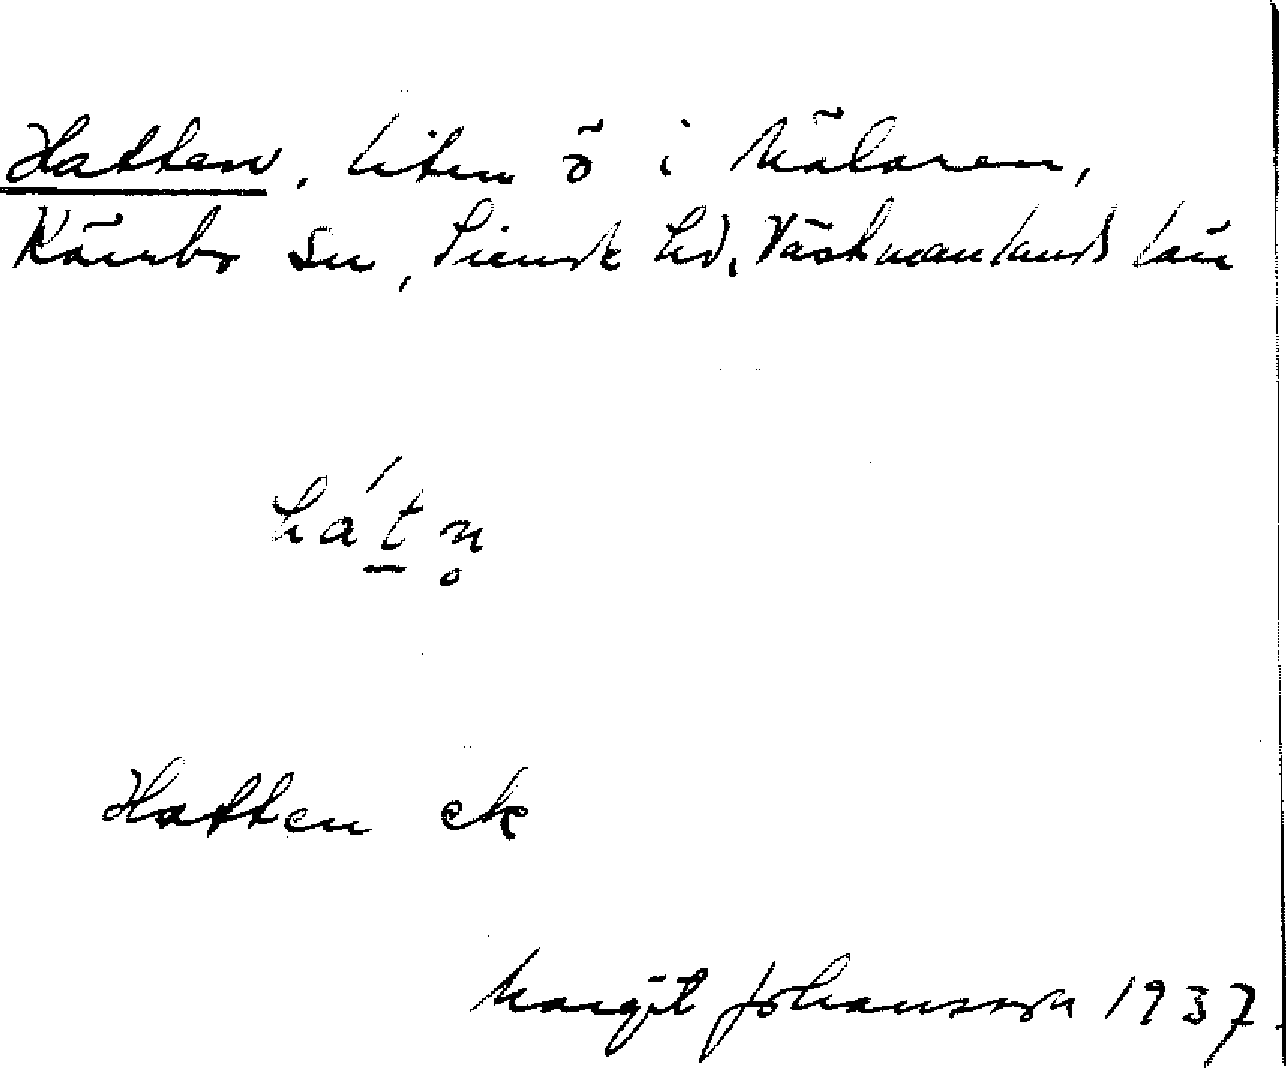 Hatten, liten ö i Mälaren,
Kärrbo sn, Siende hd, Västmanlands län
há´t̲n̥
Hatten ek
Margit Johansson 1937.